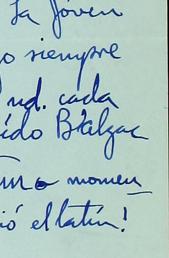 La Jóven
o siempre
ud. cada
ido Balzac
momen_
ió el latin!